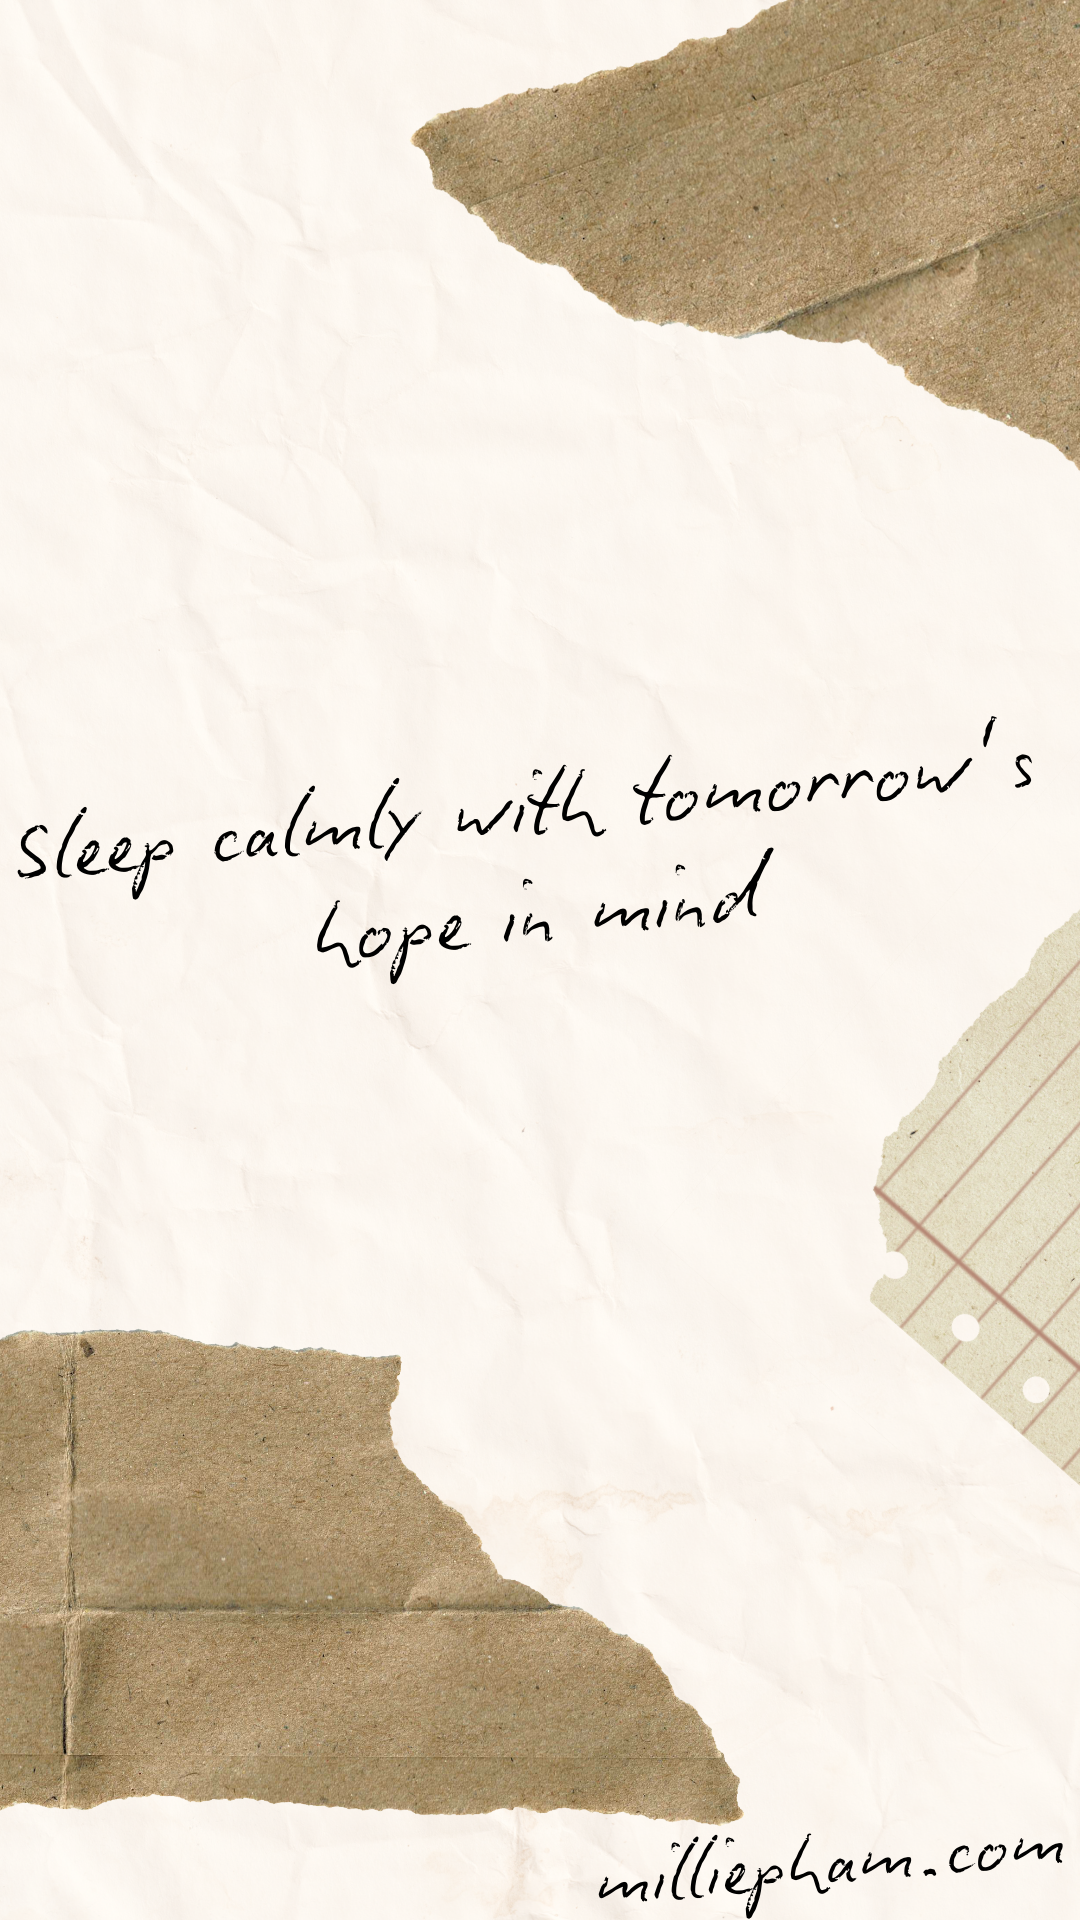 Sleep calmly with tomorrow's
hope in mind
milliepham.com